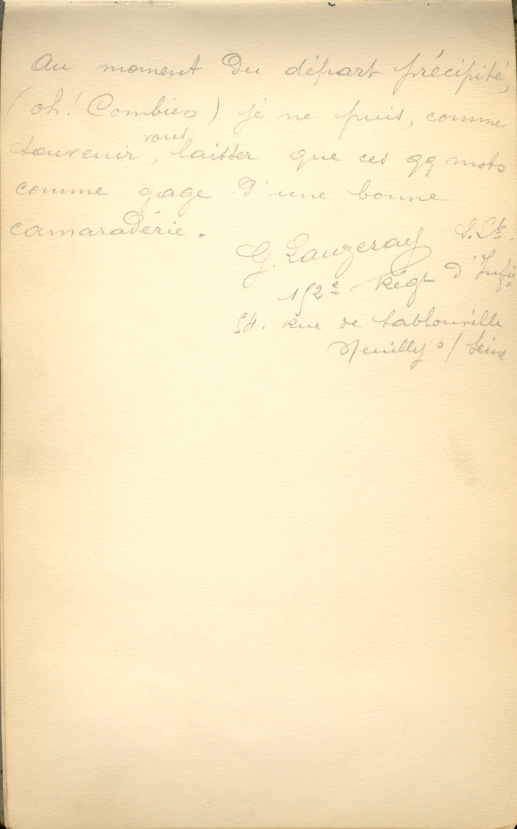 Au moment du départ précipité,
(oh! Combien) je ne puis, comme
souvenir, vous laisser que ces qq. mots
comme gage d'une bonne
camaraderie.
G. Lauzeray S. Lt.
152e Régt d'Infie
54. Rue de Sablonville
Neuilly s/ Seine